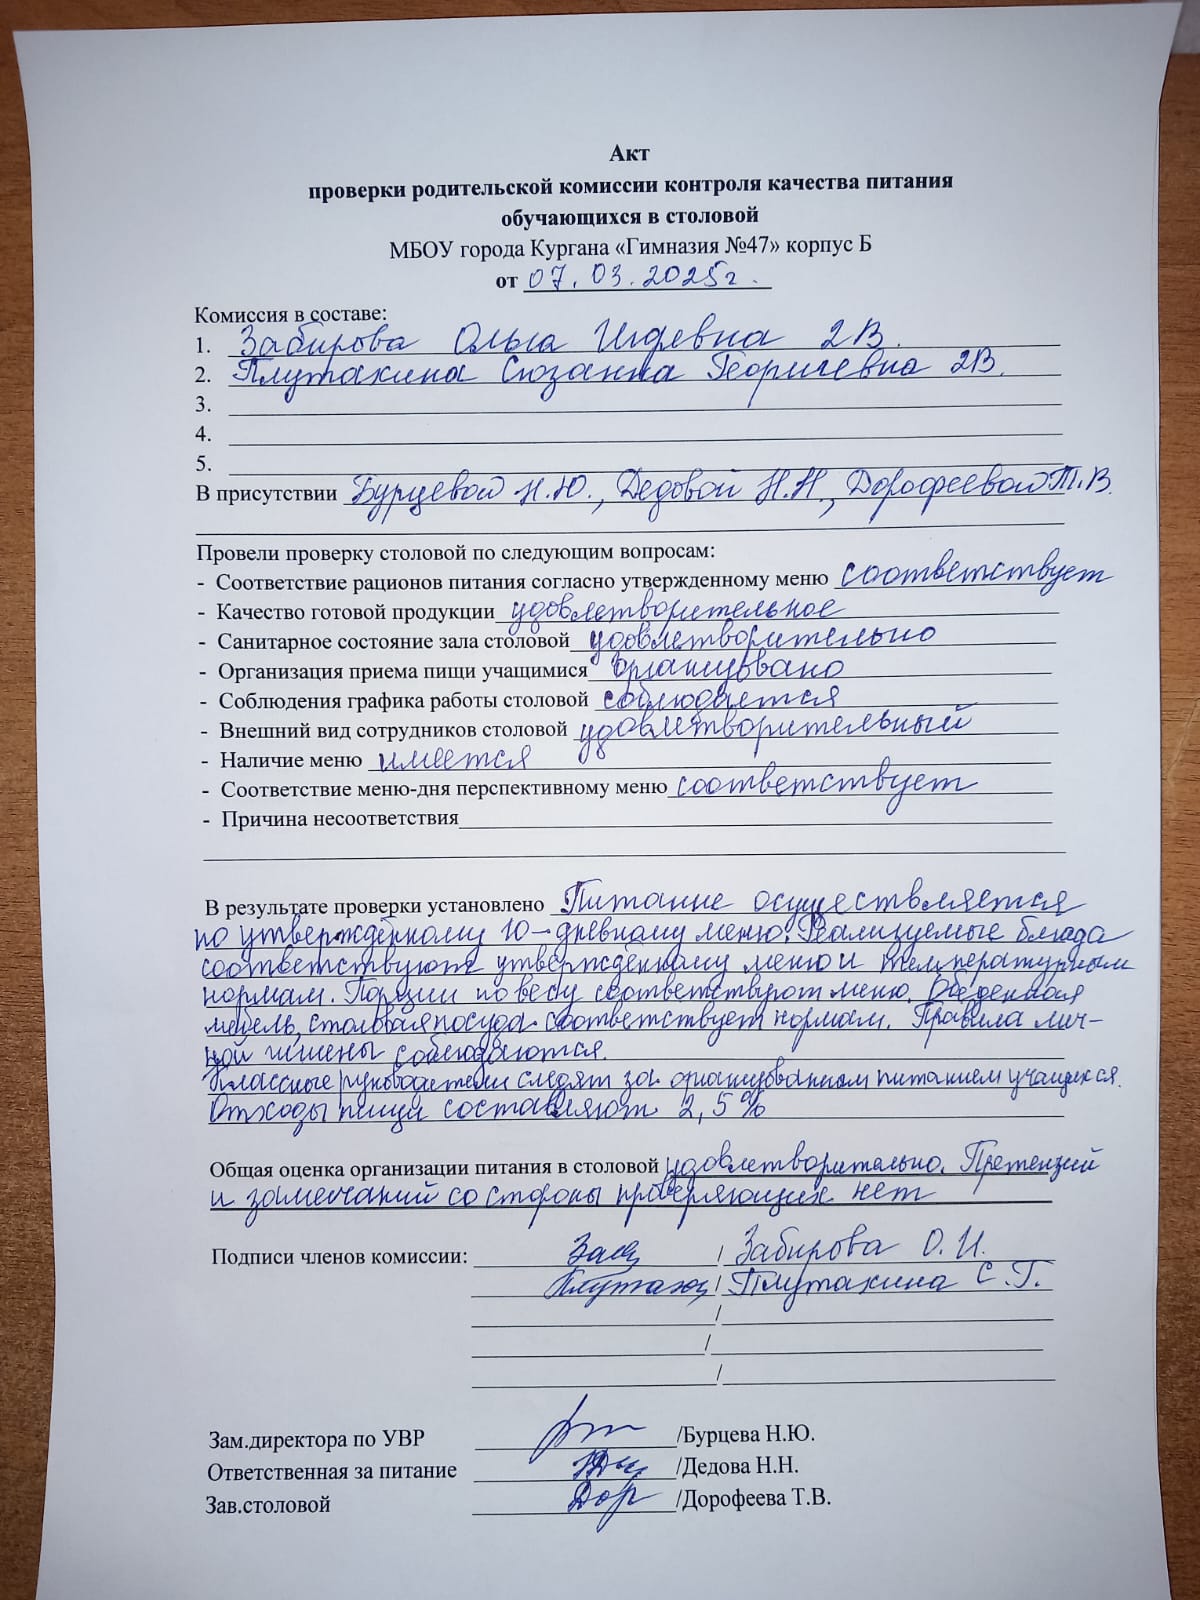 Акт
проверки родительской комиссии контроля качества питания
обучающихся в столовой
МБОУ города Кургана «Гимназия №47» корпус Б
от 07.03.2025г.
Комиссия в составе:
1. Забирова Ольга 2В.
2. Плутахина Сюзанна Георгиевна 2В.
3.
4.
5.
В присутствии Бурцевой Н.Ю., Дедовой Н.Н., Дорофеевой Т.В.
Провели проверку столовой по следующим вопросам:
- Соответствие рационов питания согласно утвержденному меню соответствует
- Качество готовой продукции удовлетворительное
- Санитарное состояние зала столовой удовлетворительно
- Организация приема пищи учащимися организовано
- Соблюдения графика работы столовой соблюдается
- Внешний вид сотрудников столовой удовлетворительный
- Наличие меню имеется
- Соответствие меню-дня перспективному меню соответствует
- Причина несоответствия
В результате проверки установлено Питание осуществляется
по утверждённому 10-дневному меню. Реализуемые блюда
соответствуют утверждённому меню и температурным
нормам. Порции по весу соответствуют меню. Обеденная
мебель, столовая посуда соответствует нормам. Правила лич-
ной гигиены соблюдаются.
Классные руководители следят за организованным питанием учащихся.
Отходы пищи составляют 2,5%
Общая оценка организации питания в столовой удовлетворительно. Претензий
и замечаний со стороны проверяющих нет
Подписи членов комиссии: / Забирова О.И.
/ Плутахина С.Г.
/
/
/
Зам.директора по УВР /Бурцева Н.Ю.
Ответственная за питание /Дедова Н.Н.
Зав.столовой Дор /Дорофеева Т.В.